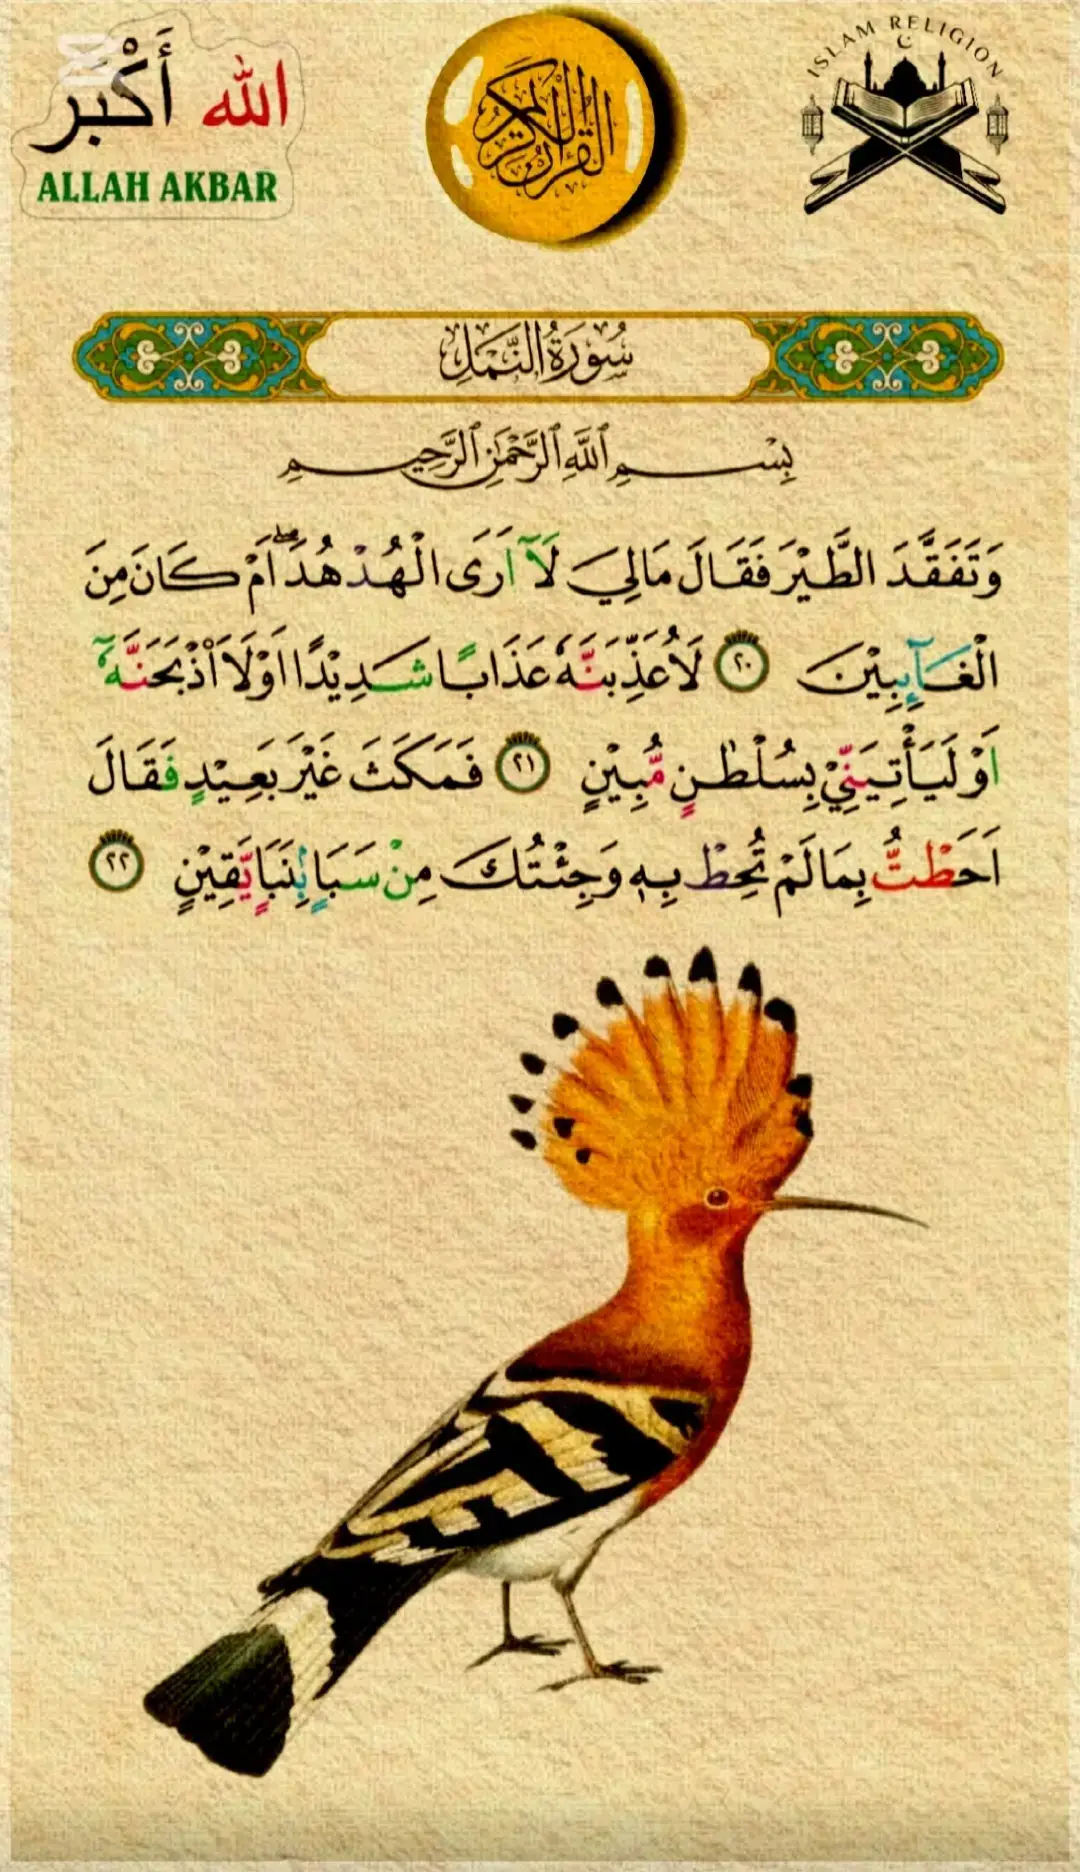 الله أَكْبَر
ALLAH AKBAR
القرآن الكريم
ISLAM RELIGION
سُورَةُ النَّمْلِ
بِسْمِ ٱللَّهِ ٱلرَّحْمَٰنِ ٱلرَّحِيمِ
وَتَفَقَّدَ الطَّيْرَ فَقَالَ مَالِيَ لَآ اَرَى الْهُدْهُدَ ۖ اَمْ كَانَ مِنَ
الْغَآىِٕبِيْنَ ٢٠ لَاُعَذِّبَنَّهٗ عَذَابًا شَدِيْدًا اَوْلَا۟اَذْبَحَنَّهٗٓ
اَوْ لَيَأْتِيَنِّيْ بِسُلْطٰنٍ مُّبِيْنٍ ٢١ فَمَكَثَ غَيْرَ بَعِيْدٍ فَقَالَ
اَحَطْتُّ بِمَا لَمْ تُحِطْ بِهٖ وَجِئْتُكَ مِنْ سَبَاٍۢ بِنَبَاٍ يَّقِيْنٍ ٢٢